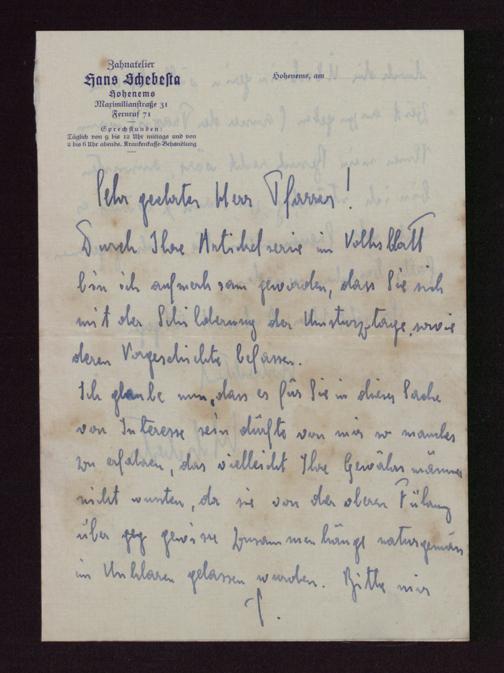 Zahnatelier
Hans Schebesta
Hohenems
Maximilianstraße 31
Fernruf 71
Sprechstunden:
Täglich von 9 bis 12 Uhr mittags und von
2 bis 6 Uhr abends. Krankenkasse-Behandlung
Hohenems, am
Sehr geehrter Herr Pfarrer!
Durch Ihre Artikelserie im Volksblatt
bin ich aufmerksam geworden, dass Sie sich
mit der Schilderung der Umsturztage, sowie
deren Vorgeschichte befassen.
Ich glaube nun, dass es für Sie in dieser Sache
von Interesse sein dürfte von mir so manches
zu erfahren, das vielleicht Ihre Gewährsmänner
nicht wussten, da sie von der oberen Führung
über gewisse Zusammenhänge naturgemäss
im Unklaren gelassen wurden. Bitte mir